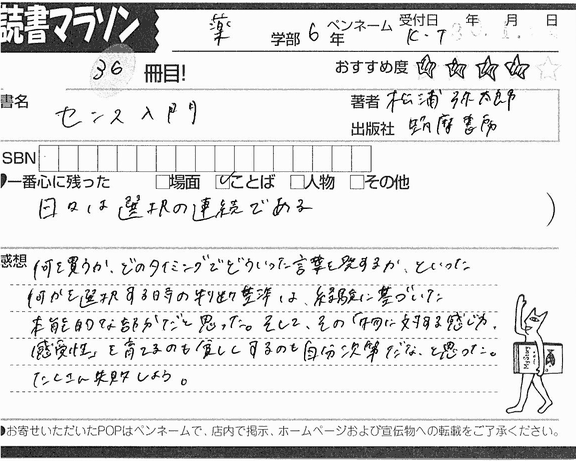 読書マラソン
薬 学部 6 年 ペンネーム K.T 受付日 年 月 日
36 冊目!
おすすめ度 ★★★★☆
書名 センス入門
著者 松浦弥太郎
出版社 筑摩書房
SBN
一番心に残った □場面 ☑ことば □人物 □その他
日々は選択の連続である )
感想
何を買うか、どのタイミングでどういった言葉を発するか、といった
何かを選択する時の判断基準は、経験に基づいた
本能的な部分だと思った。そして、その「物に対する感じ方、
感受性」を育てるのも乏しくするのも自分次第だな、と思った。
たくさん失敗しよう。
●お寄せいただいたPOPはペンネームで、店内で掲示、ホームページおよび宣伝物への転載をご了承ください。